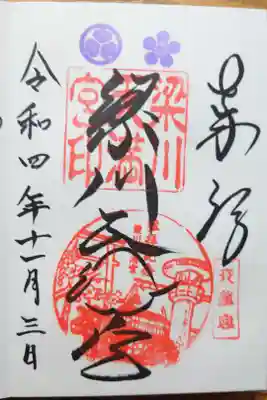 奉拝
梁川天満宮
令和四年十一月三日
梁川
天満
宮印